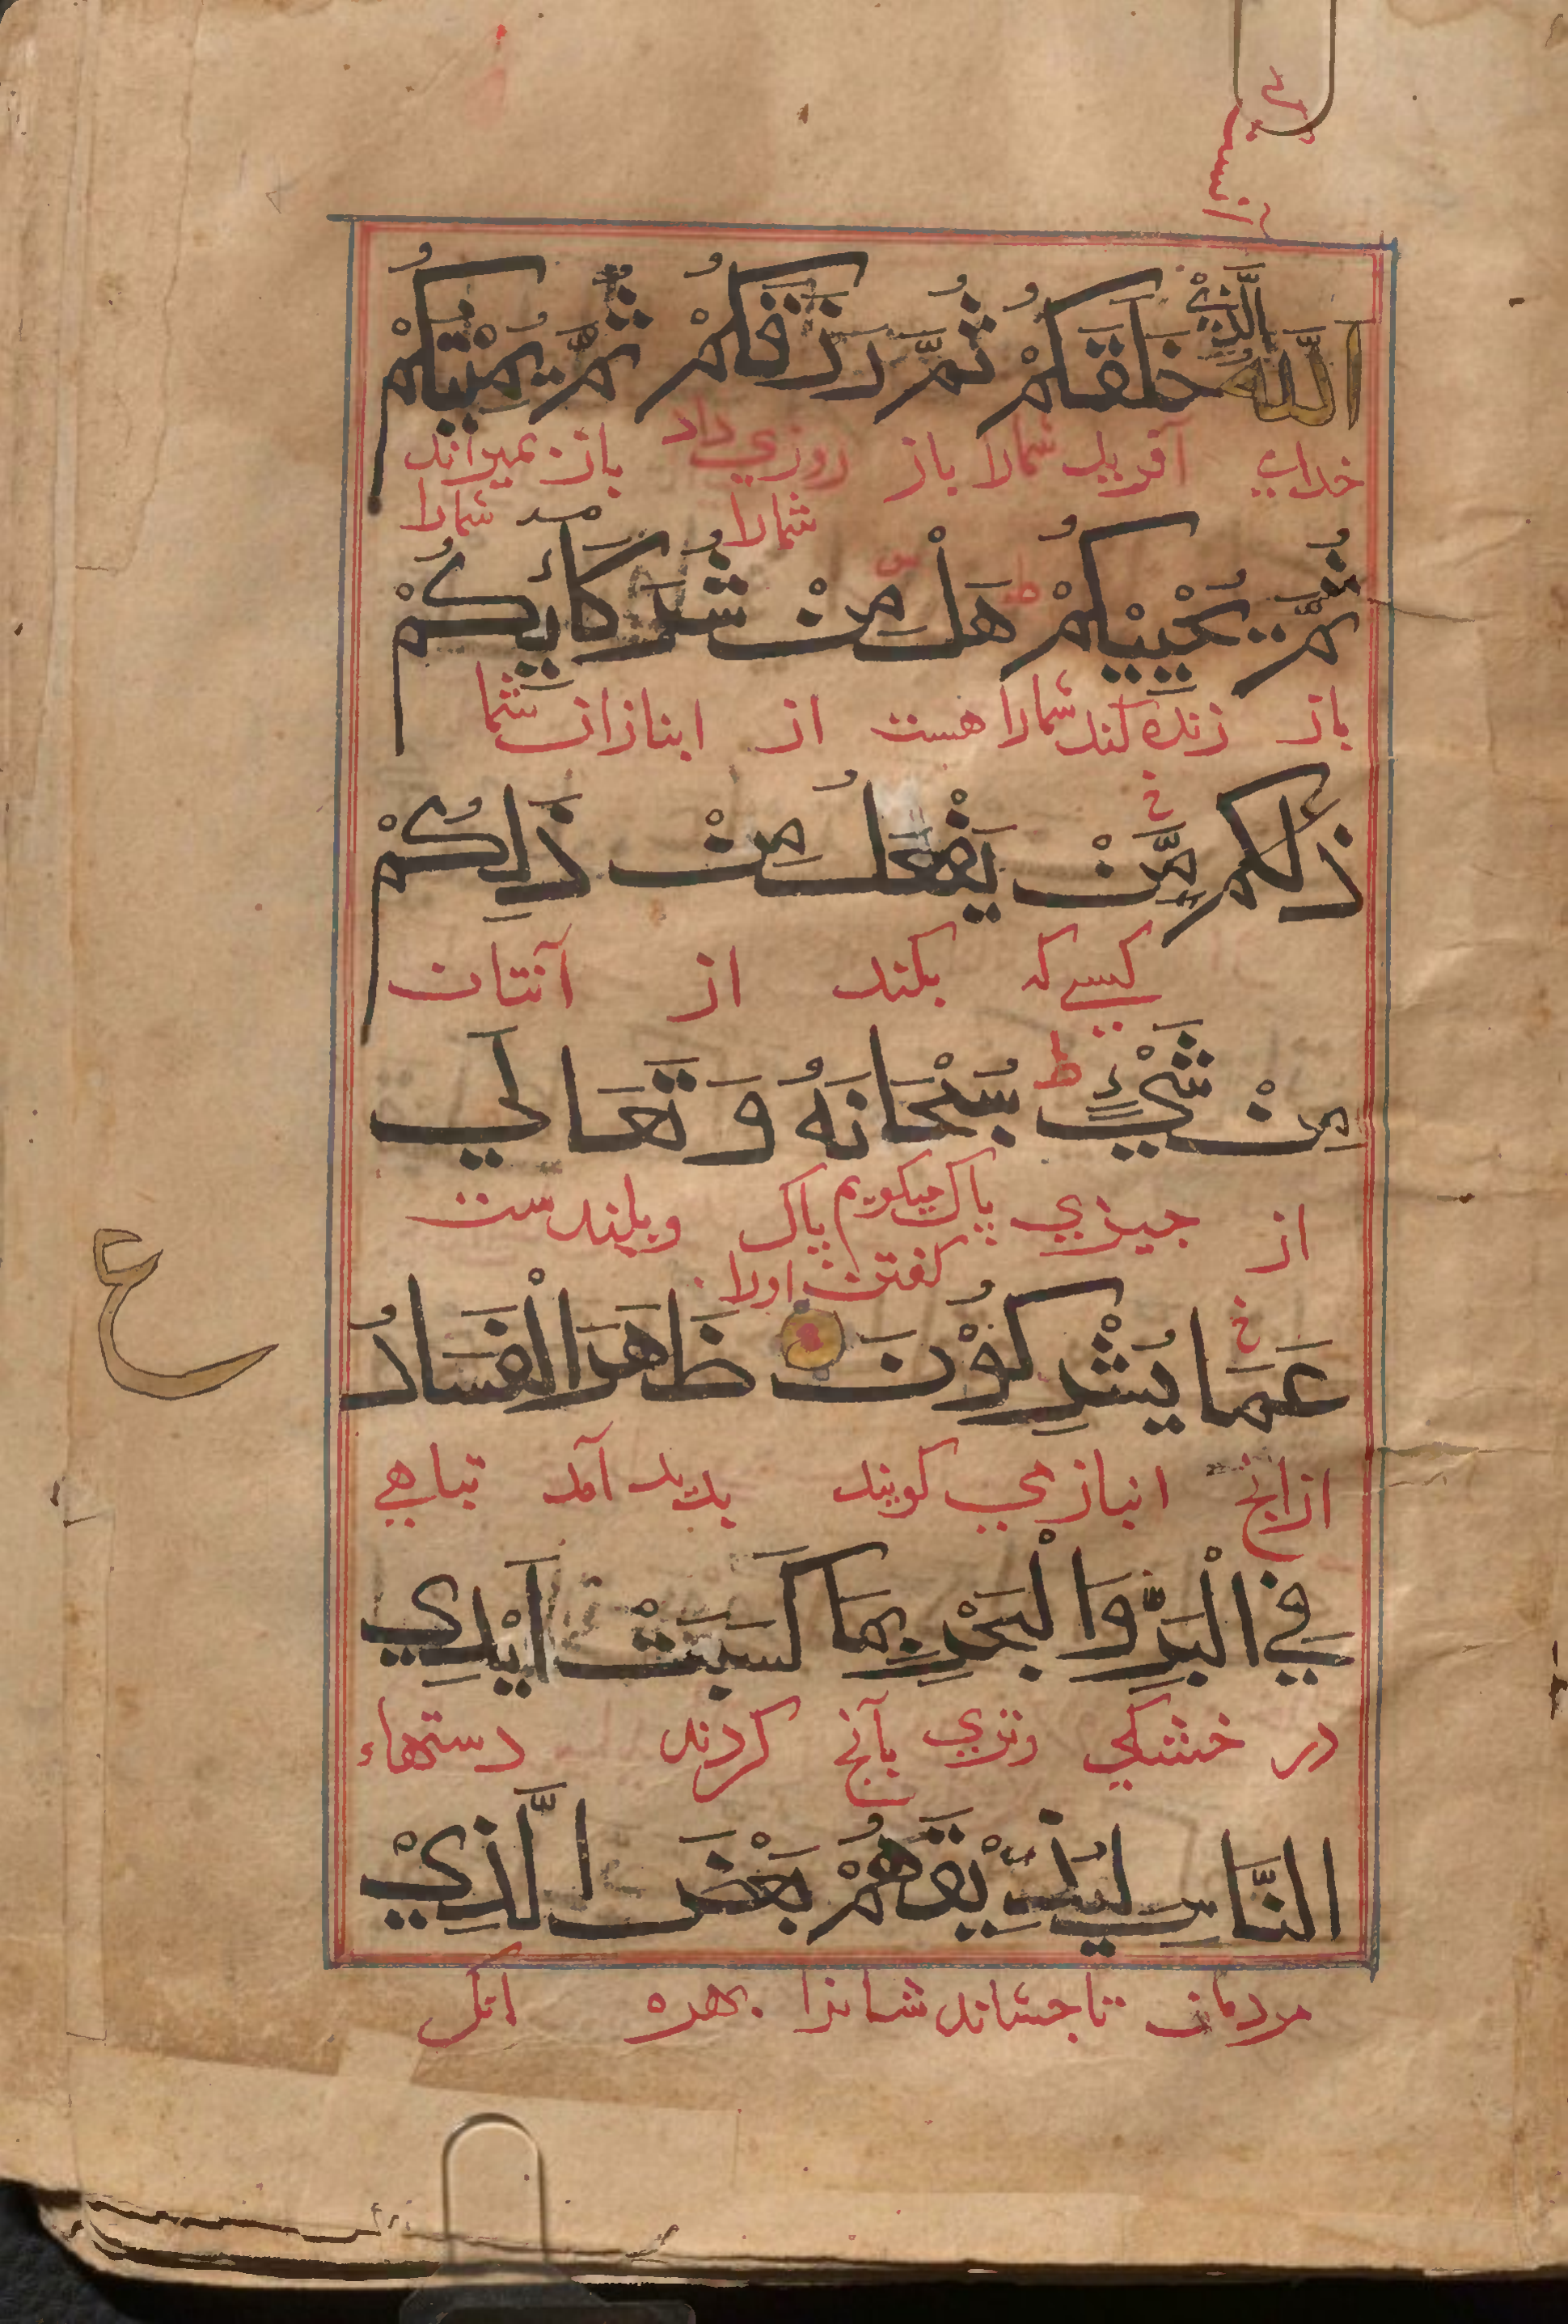 آنست که
اللَّهُ الَّذِيْ خَلَقَكُمْ ثُمَّ رَزَقَكُمْ ثُمَّ يُمِيْتُكُمْ
خدای آفرید شمارا باز روزي داد باز بمیراند
شمارا شمارا
ثُمَّ يُحْيِيْكُمْ ط هَلْ مِنْ شُرَكَآئِكُمْ
باز زنده کند شمارا هست از ابنازان شما
ذٰلكم مَّنْ يَفْعَلُ مِنْ ذَالِكُمْ
کسے که بکند از آنتان
مِنْ شَيْءٍ ط سُبْحَانَهُ وَ تَعَالَي
از جیزي پاک میکویم پاک وبلندست
کفتن اورا
عَمَا يُشْرِكُوْنَ ظَهَرَ الْفَسَادُ
ازانج انبازي کویند بدید آمد تباهي
ع
فِي الْبَرِّ وَالْبَحْرِ بِمَا كَسَبَتْ اَيْدِي
در خشکي وتري بآنج کردند دستهاء
النَّاسِ لِيُذِيْقَهُمْ بَعْضَ الَّذِيْ
مردمان تا جشاند شانرا بهره انک